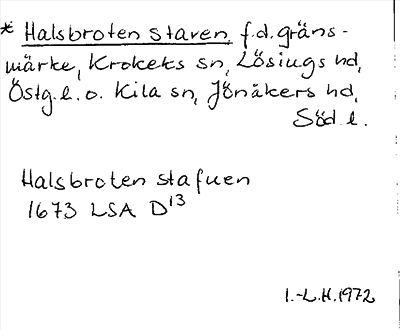 * Halsbroten staven f.d. gräns-
märke, Krokeks sn, Lösings hd,
Östg. l. o. Kila sn, Jönåkers hd,
Söd. l.
Halsbroten stafuen
1673 LSA D13
I.-L.H. 1972